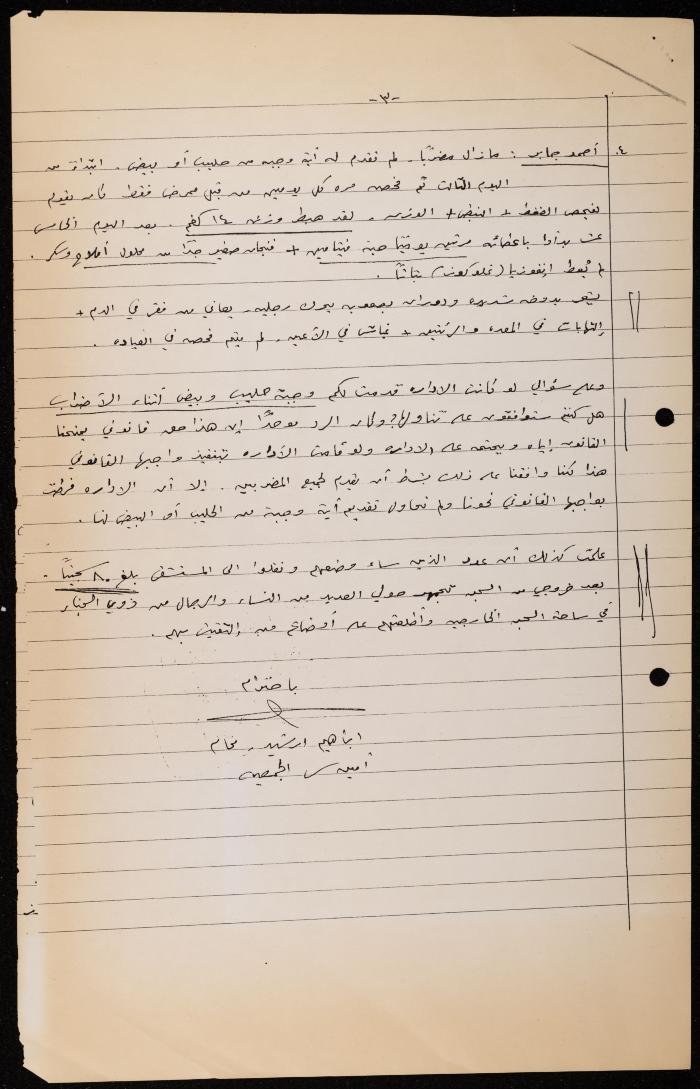 -٣-
٤. أحمد جابر: مازال مضربًا. لم تقدم له أية وجبه من حليب أو بيض. ابتداءً من
اليوم الثالث تم فحصه مره كل يومين من قبل ممرض فقط كان يقوم
بفحص الضغط + النبض + الوزن. لقد هبط وزنه ١٤ كغم. بعد اليوم الخامس
عشر بدأوا باعطائه مرتين يوميًا حبة فيتامين + فنجان صغير جدًا من محلول أملاح وسكر.
لم يُعط إنفوزيا (غلوكوز) بتاتًا.
يشعر بدوخه شديده ودوران بصعوبه يحرك رجليه. يعاني من فقر في الدم +
إلتهابات في المعده والرئتين + غباش في الأعين. لم يتم فحصه في العياده.
وعلى سؤالي لو كانت الاداره قدمت لكم وجبة حليب وبيض أثناء الأضراب
هل كنتم ستوافقون على تناولها؟ وكان الرد موحدًا إن هذا حق قانوني يمنحنا
القانون إياه ويحتمه على الاداره ولو قامت الأداره بتنفيذ واجبها القانوني
هذا كنا وافقنا على ذلك بشرط أن يقدم لجميع المضربين. إلا أن الاداره فرطت
بواجبها القانوني نحونا ولم تحاول تقديم أية وجبة من الحليب أو البيض لنا.
علمت كذلك أن عدد الذين ساء وضعهم ونقلوا الى المستشفى بلغ ٨٠ سجينًا.
بعد خروجي من السجن تجمهر حولي العديد من النساء والرجال من ذوي السجناء
في ساحة السجن الخارجيه وأطلعتهم على أوضاع من إلتقيت بهم.
باحترام
ابراهيم ارشيد - محام
أمين سر الجمعيه